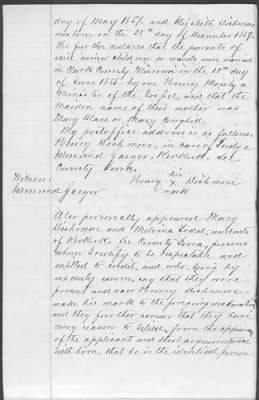 day of May 1857. and Elizabeth Dishmore
was born on the 28th day of December 1859.
He further declares that the parents of
said minor children or wards were married
in Clark County Missouri in the 10th day of
June 1855. by one Henry Mosely a
Minister of the Gospel, and that the
maiden name of their mother was
Mary Blane or Crazy
My postoffice address is as follows
Henry Dishmore, in care of Judge
Edmund Jaeger, Keokuk. Lee
County Iowa.
Witness
Edmund Jaeger
his
Henry X Dishmore
mark
Also personally appeared Mary
Dishmore and Melvina residents
of Keokuk, Lee County Iowa, persons
whom I certify to be respectable and
entitled to credit, and who being by
me duly sworn, say that they were
present and saw Henry Dishmore
make his mark to the foregoing declaration
and they further swear that they have
every reason to believe from the appearance
of the applicant and their acquaintance
with him, that he is the identical person